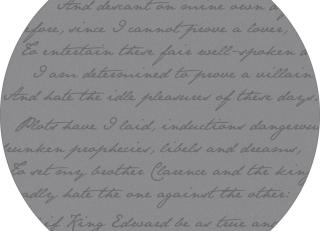 And descant on mine own
fore, since I cannot prove a lover,
To entertain these fair well-spoken
I am determined to prove a villain
And hate the idle pleasures of these days.
Plots have I laid, inductions dangerous
runken prophecies, libels and dreams,
To set my brother Clarence and the king
adly hate the one against the other:
if King Edward be as true and